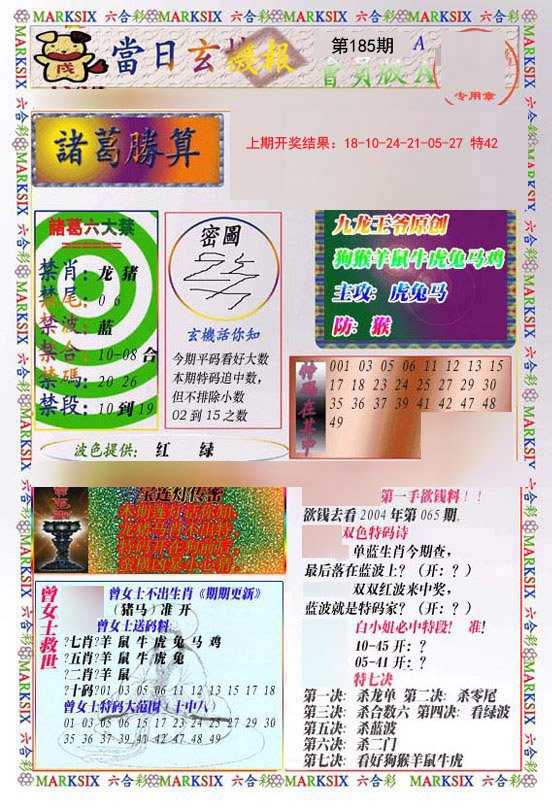 MARKSIX 六合彩 MARKSIX 六合彩 MARKSIX 六合彩 MARKSIX 六合彩
當日玄機報
第185期
A
會員版A
专用章
諸葛勝算
上期开奖结果：18-10-24-21-05-27 特42
諸葛六大禁
禁肖：龙 猪
禁尾：0 6
禁波：蓝
禁合：10-08 合
禁碼：20 26
禁段：10 到 19
密圖
玄機話你知
今期平码看好大数
本期特码追中数，
但不排除小数
02 到 15 之数
九龙王爷原创
狗猴羊鼠牛虎兔马鸡
主攻：虎兔马
防：猴
特码在其中
001 03 05 06 11 12 13 15
17 18 23 24 25 27 29 30
35 36 37 39 41 42 47 48
49
波色提供： 红 绿
宝莲灯传密
第一手欲钱料！！
欲钱去看 2004 年第 065 期.
双色特码诗
单蓝生肖今期查，
最后落在蓝波上？（开：？）
双双红波来中奖，
蓝波就是特码家？（开：？）
白小姐必中特段！ 准！
10-45 开：？
05-41 开：？
特七决
第一决：杀龙单 第二决：杀零尾
第三决：杀合数六 第四决：看绿波
第五决：杀蓝波
第六决：杀二门
第七决：看好狗猴羊鼠牛虎
曾女士救世
曾女士不出生肖《期期更新》
（猪马）准 开
曾女士送码料：
?七肖?羊 鼠 牛 虎 兔 马 鸡
?五肖?羊 鼠 牛 虎 兔
?二肖?羊 鼠
?十码?01 03 05 06 11 12 13 15 17 18
曾女士特码大范围（十中八）
01 03 05 06 15 17 23 24 25 27 29 30
35 36 37 39 41 42 47 48 49
MARKSIX 六合彩 MARKSIX 六合彩 MARKSIX 六合彩 MARKSIX 六合彩